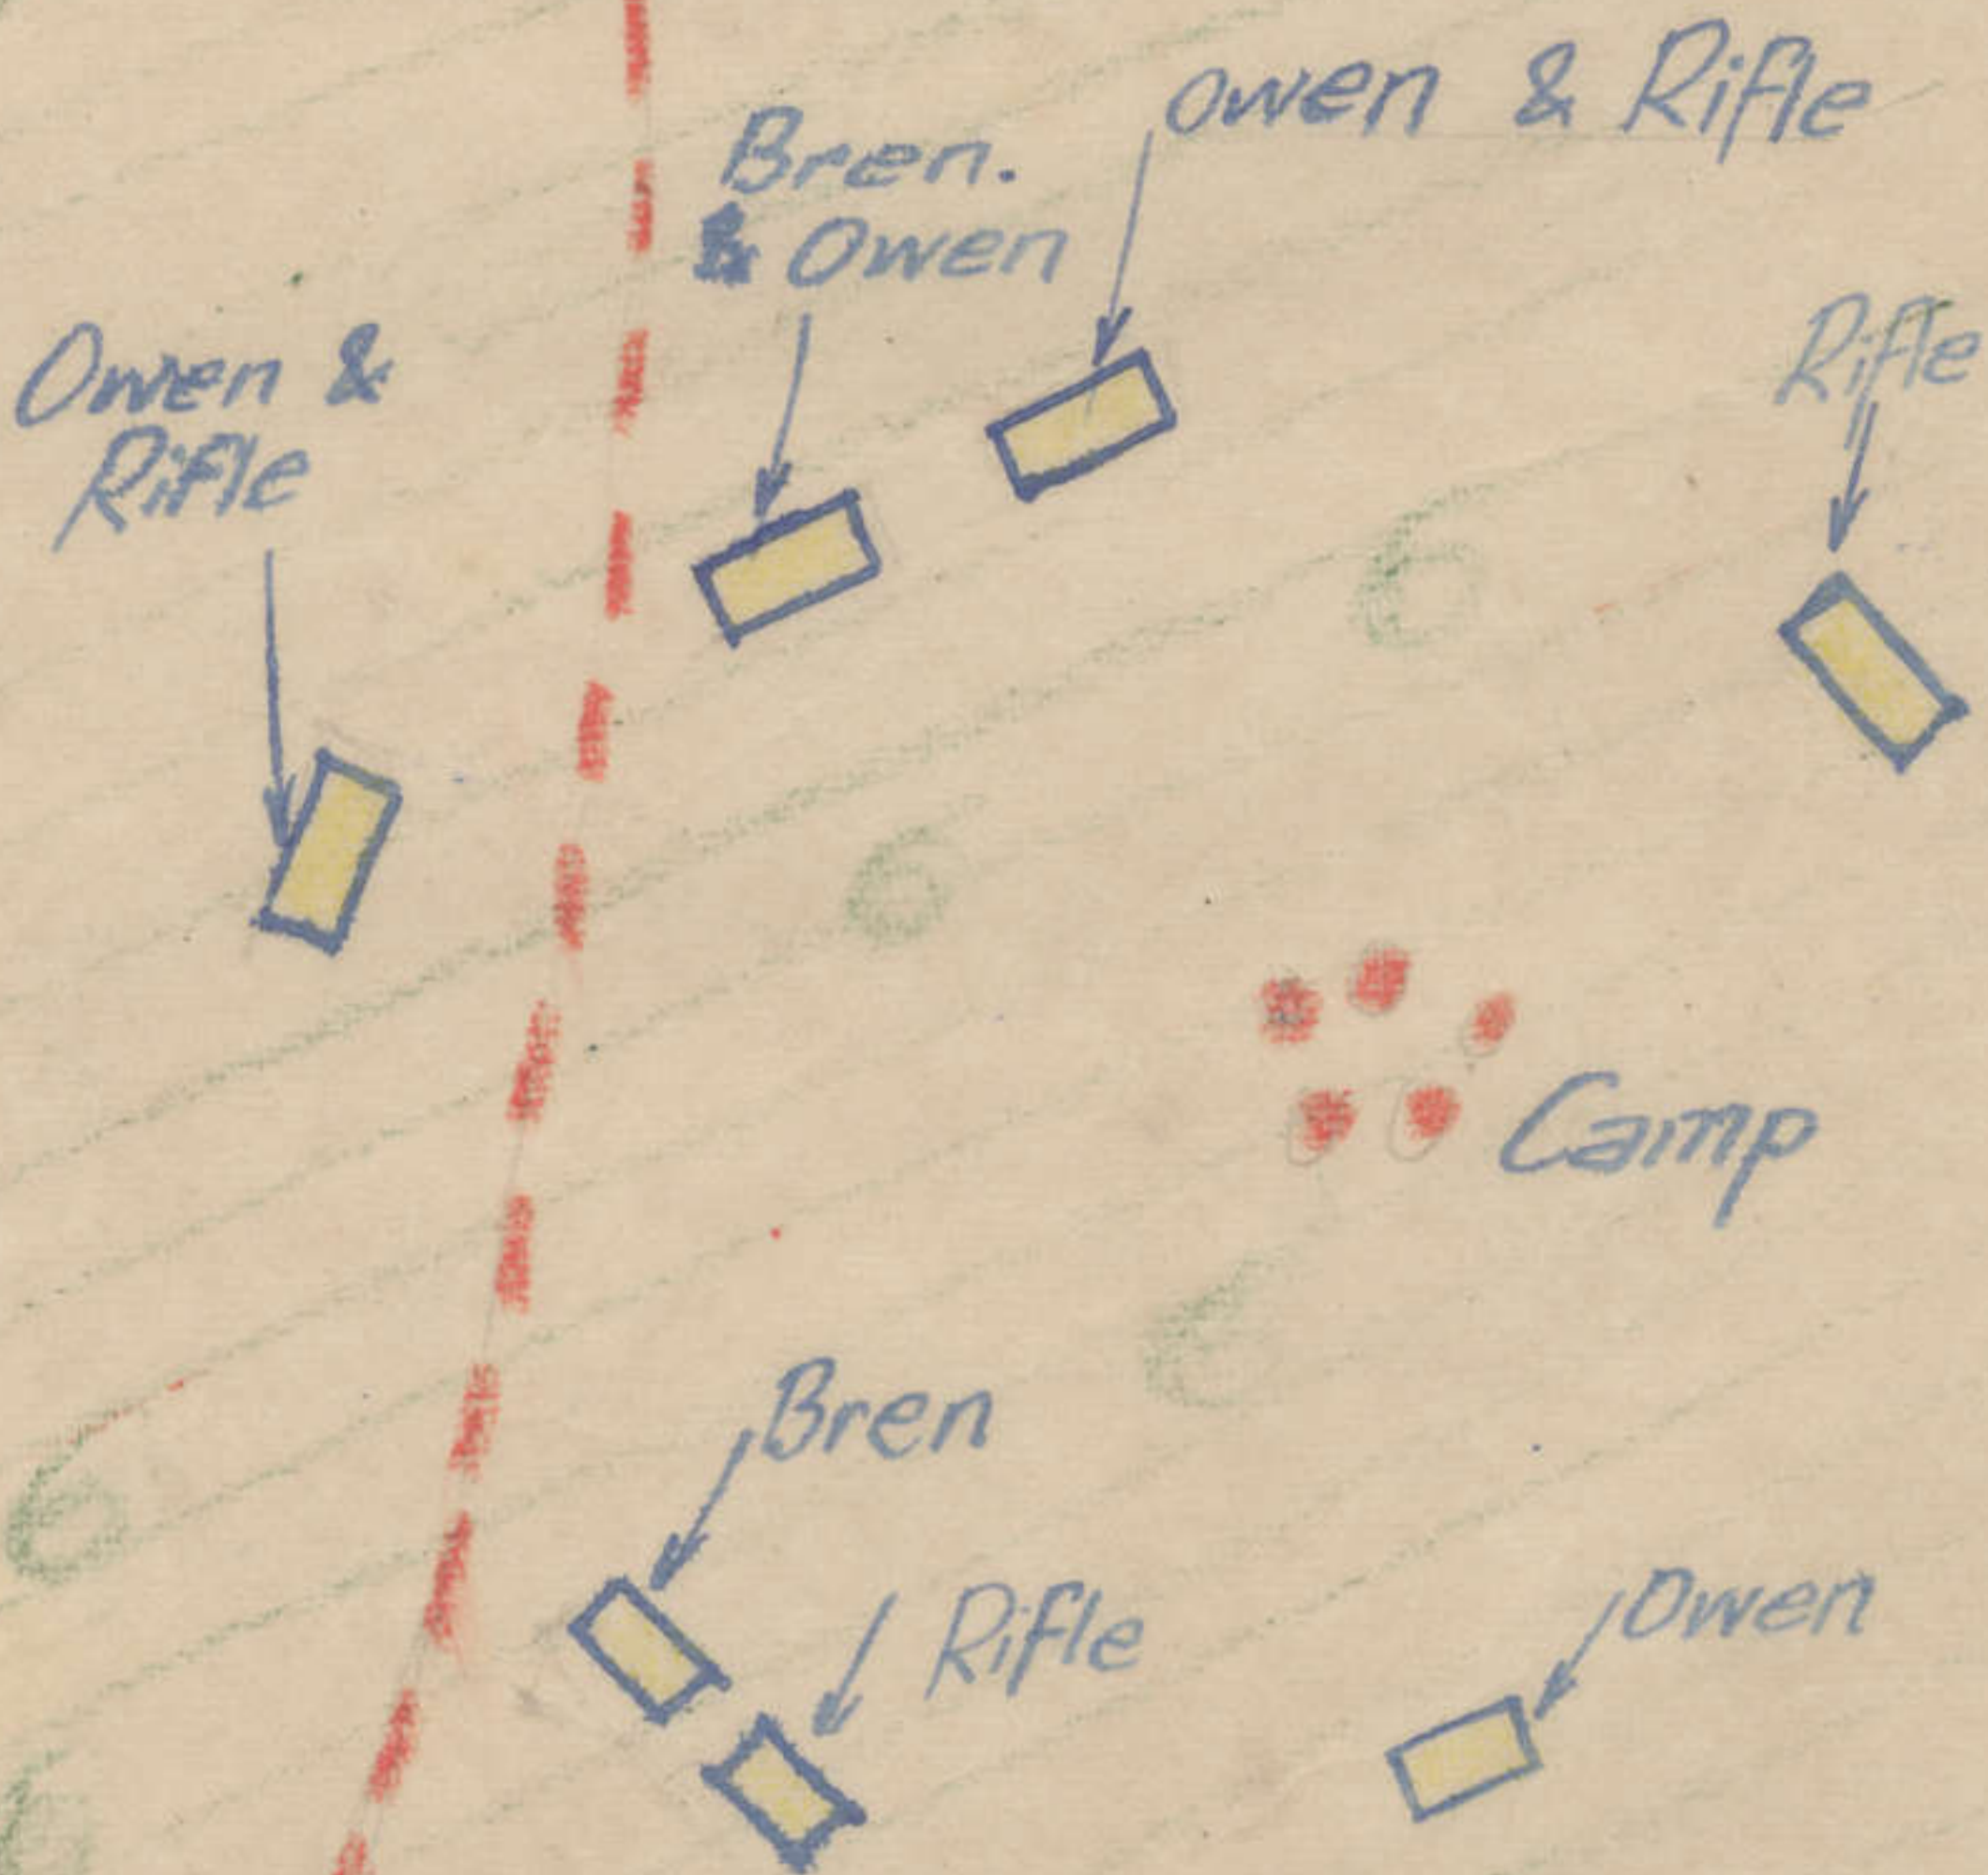 owen & Rifle
Bren.
& Owen
Rifle
Owen &
Rifle
Camp
Bren
Rifle
Owen